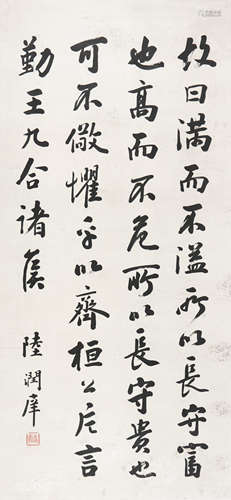 故曰满而不溢所以長守富
也高而不危所以長守貴也
可不儆懼乎以齊桓公片言
勤王九合诸矦
陸潤庠